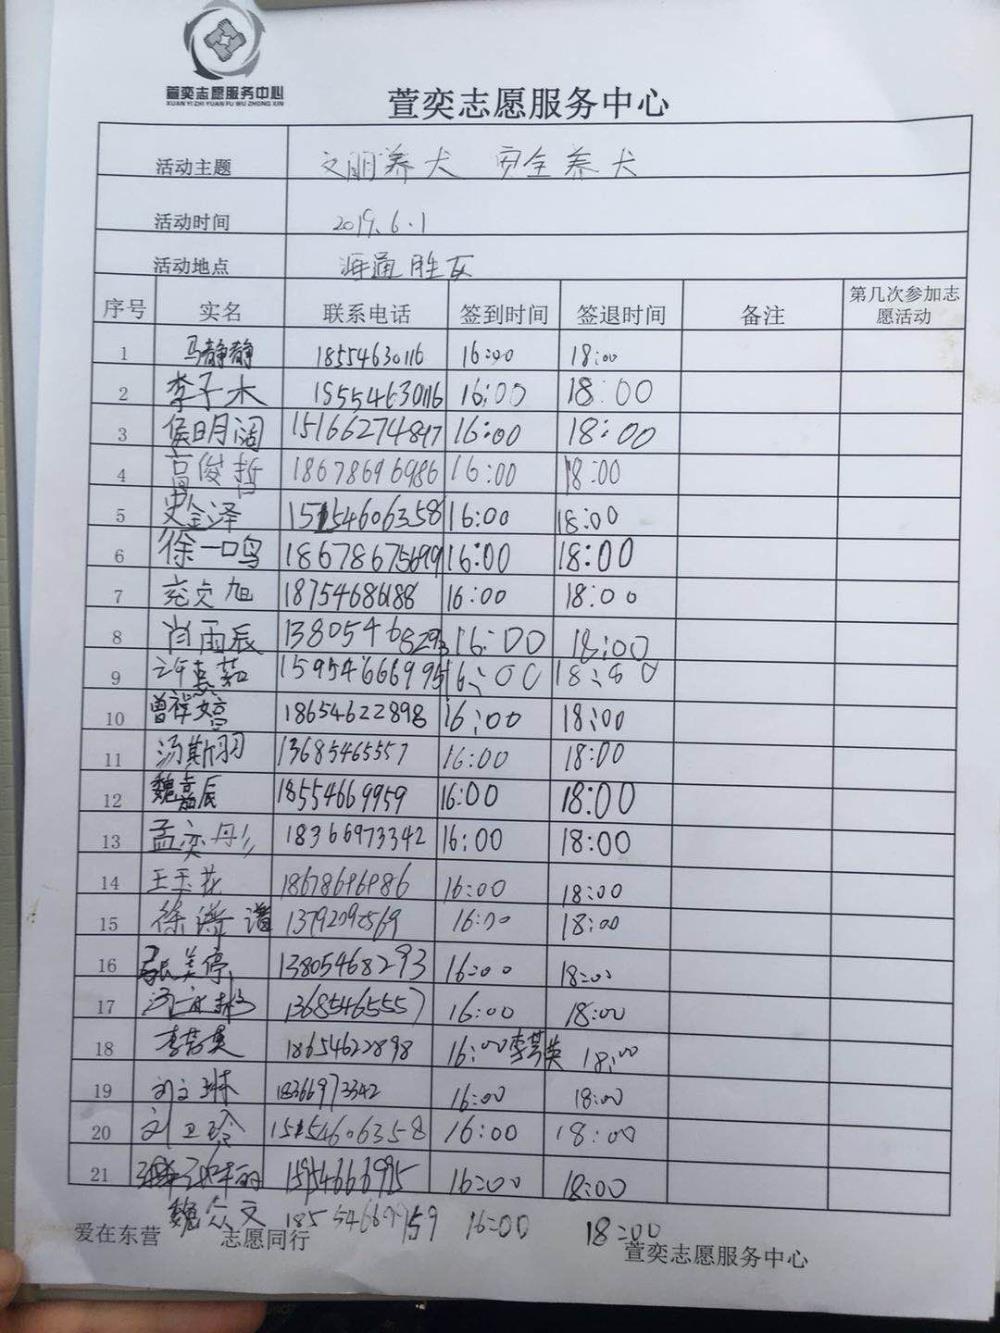 萱奕志愿服务中心
XUAN YI ZHI YUAN FU WU ZHONG XIN
萱奕志愿服务中心
活动主题 文明养犬 安全养犬
活动时间 2019.6.1
活动地点 海通胜瓦
序号 实名 联系电话 签到时间 签退时间 备注 第几次参加志愿活动
1 马静静 18554630116 16:00 18:00
2 李子木 18554630116 16:00 18:00
3 侯明阔 15166274847 16:00 18:00
4 高俊哲 18678696986 16:00 18:00
5 史金泽 15154606358 16:00 18:00
6 徐一鸣 18678675699 16:00 18:00
7 兖贞旭 18754686188 16:00 18:00
8 肖雨辰 13805468293 16:00 18:00
9 许惠茹 15954666995 16:00 18:00
10 曾祥婷 18654622898 16:00 18:00
11 汤斯羽 13685465557 16:00 18:00
12 魏嘉辰 18554669959 16:00 18:00
13 孟奕彤 18366973342 16:00 18:00
14 王玉花 18678696986 16:00 18:00
15 徐 谱 13792092569 16:00 18:00
16 张美停 13805468293 16:00 18:00
17 13685465557 16:00 18:00
18 李营英 18654622898 16:00 李营英 18:00
19 刘文琳 18366973342 16:00 18:00
20 刘卫玲 15154606358 16:00 18:00
21 15954666995 16:00 18:00
魏众文 18554669959 16:00 18:00
爱在东营 志愿同行 萱奕志愿服务中心